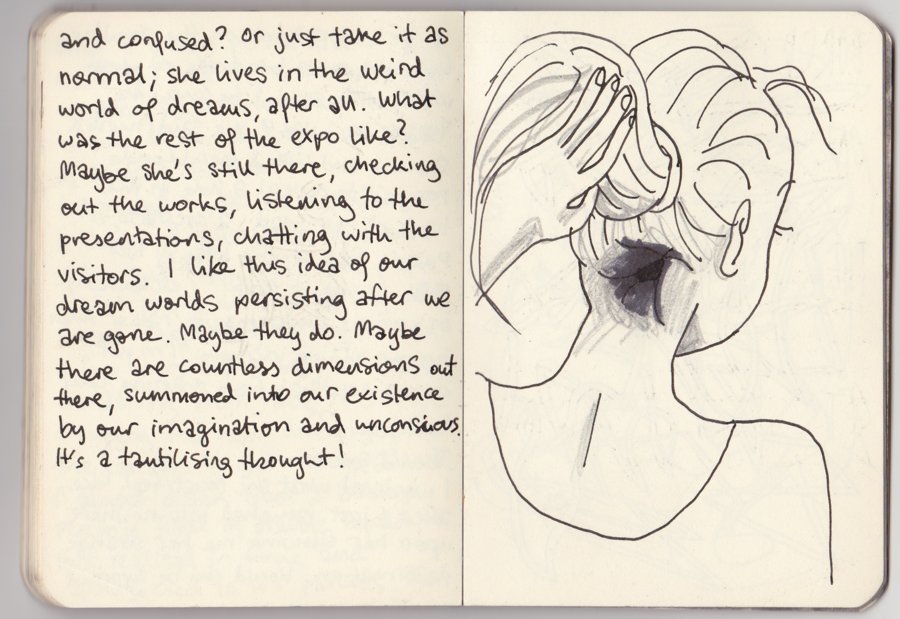 and confused? Or just take it as
normal; she lives in the weird
world of dreams, after all. What
was the rest of the expo like?
Maybe she's still there, checking
out the works, listening to the
presentations, chatting with the
visitors. I like this idea of our
dream worlds persisting after we
are gone. Maybe they do. Maybe
there are countless dimensions out
there, summoned into our existence
by our imagination and unconscious.
It's a tantilising thought!